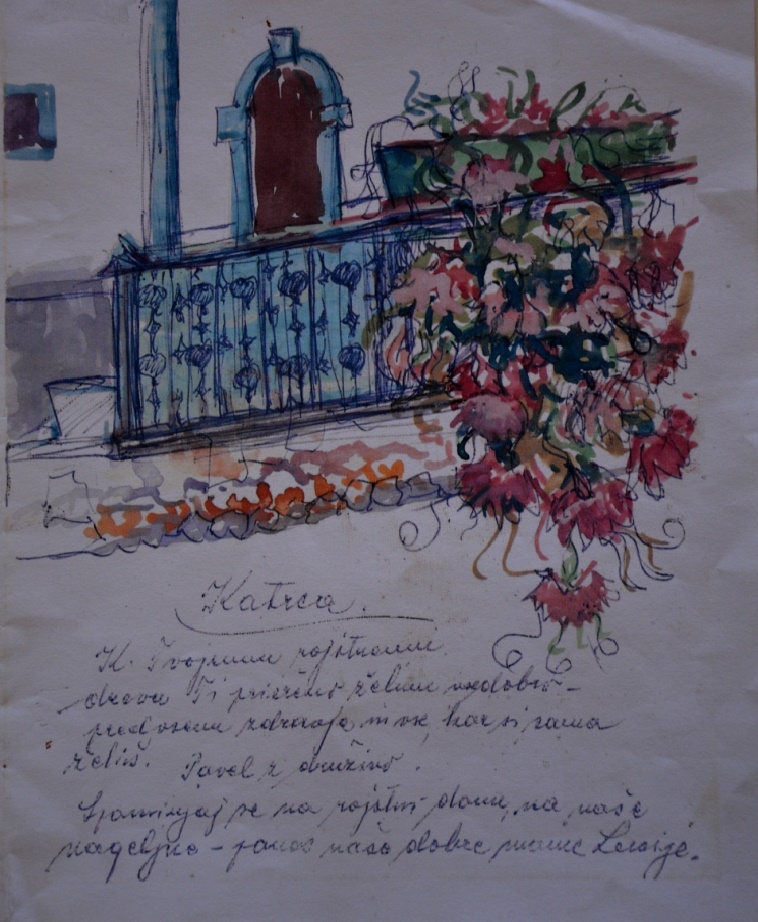 Katrca.
K. Tvojemu rojstnemu
dnevu Ti prisrčno želim vse dobro –
predvsem zdravja, in vse, kar si sama
želiš. Pavel z družino.
Spominjaj se na rojstni dom, na naše
nageljne – ponos naše dobre mame Lojzije.